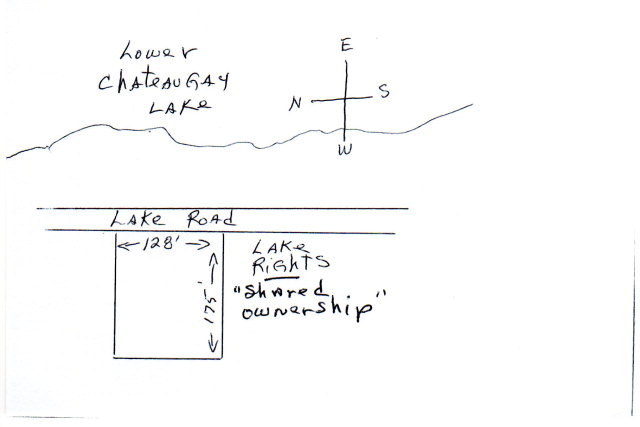 Lower
ChateauGAy
LAKe
E
N
S
W
LAKe ROAd
128'
175'
LAKe
RiGhTS
"ShAred
owNership"